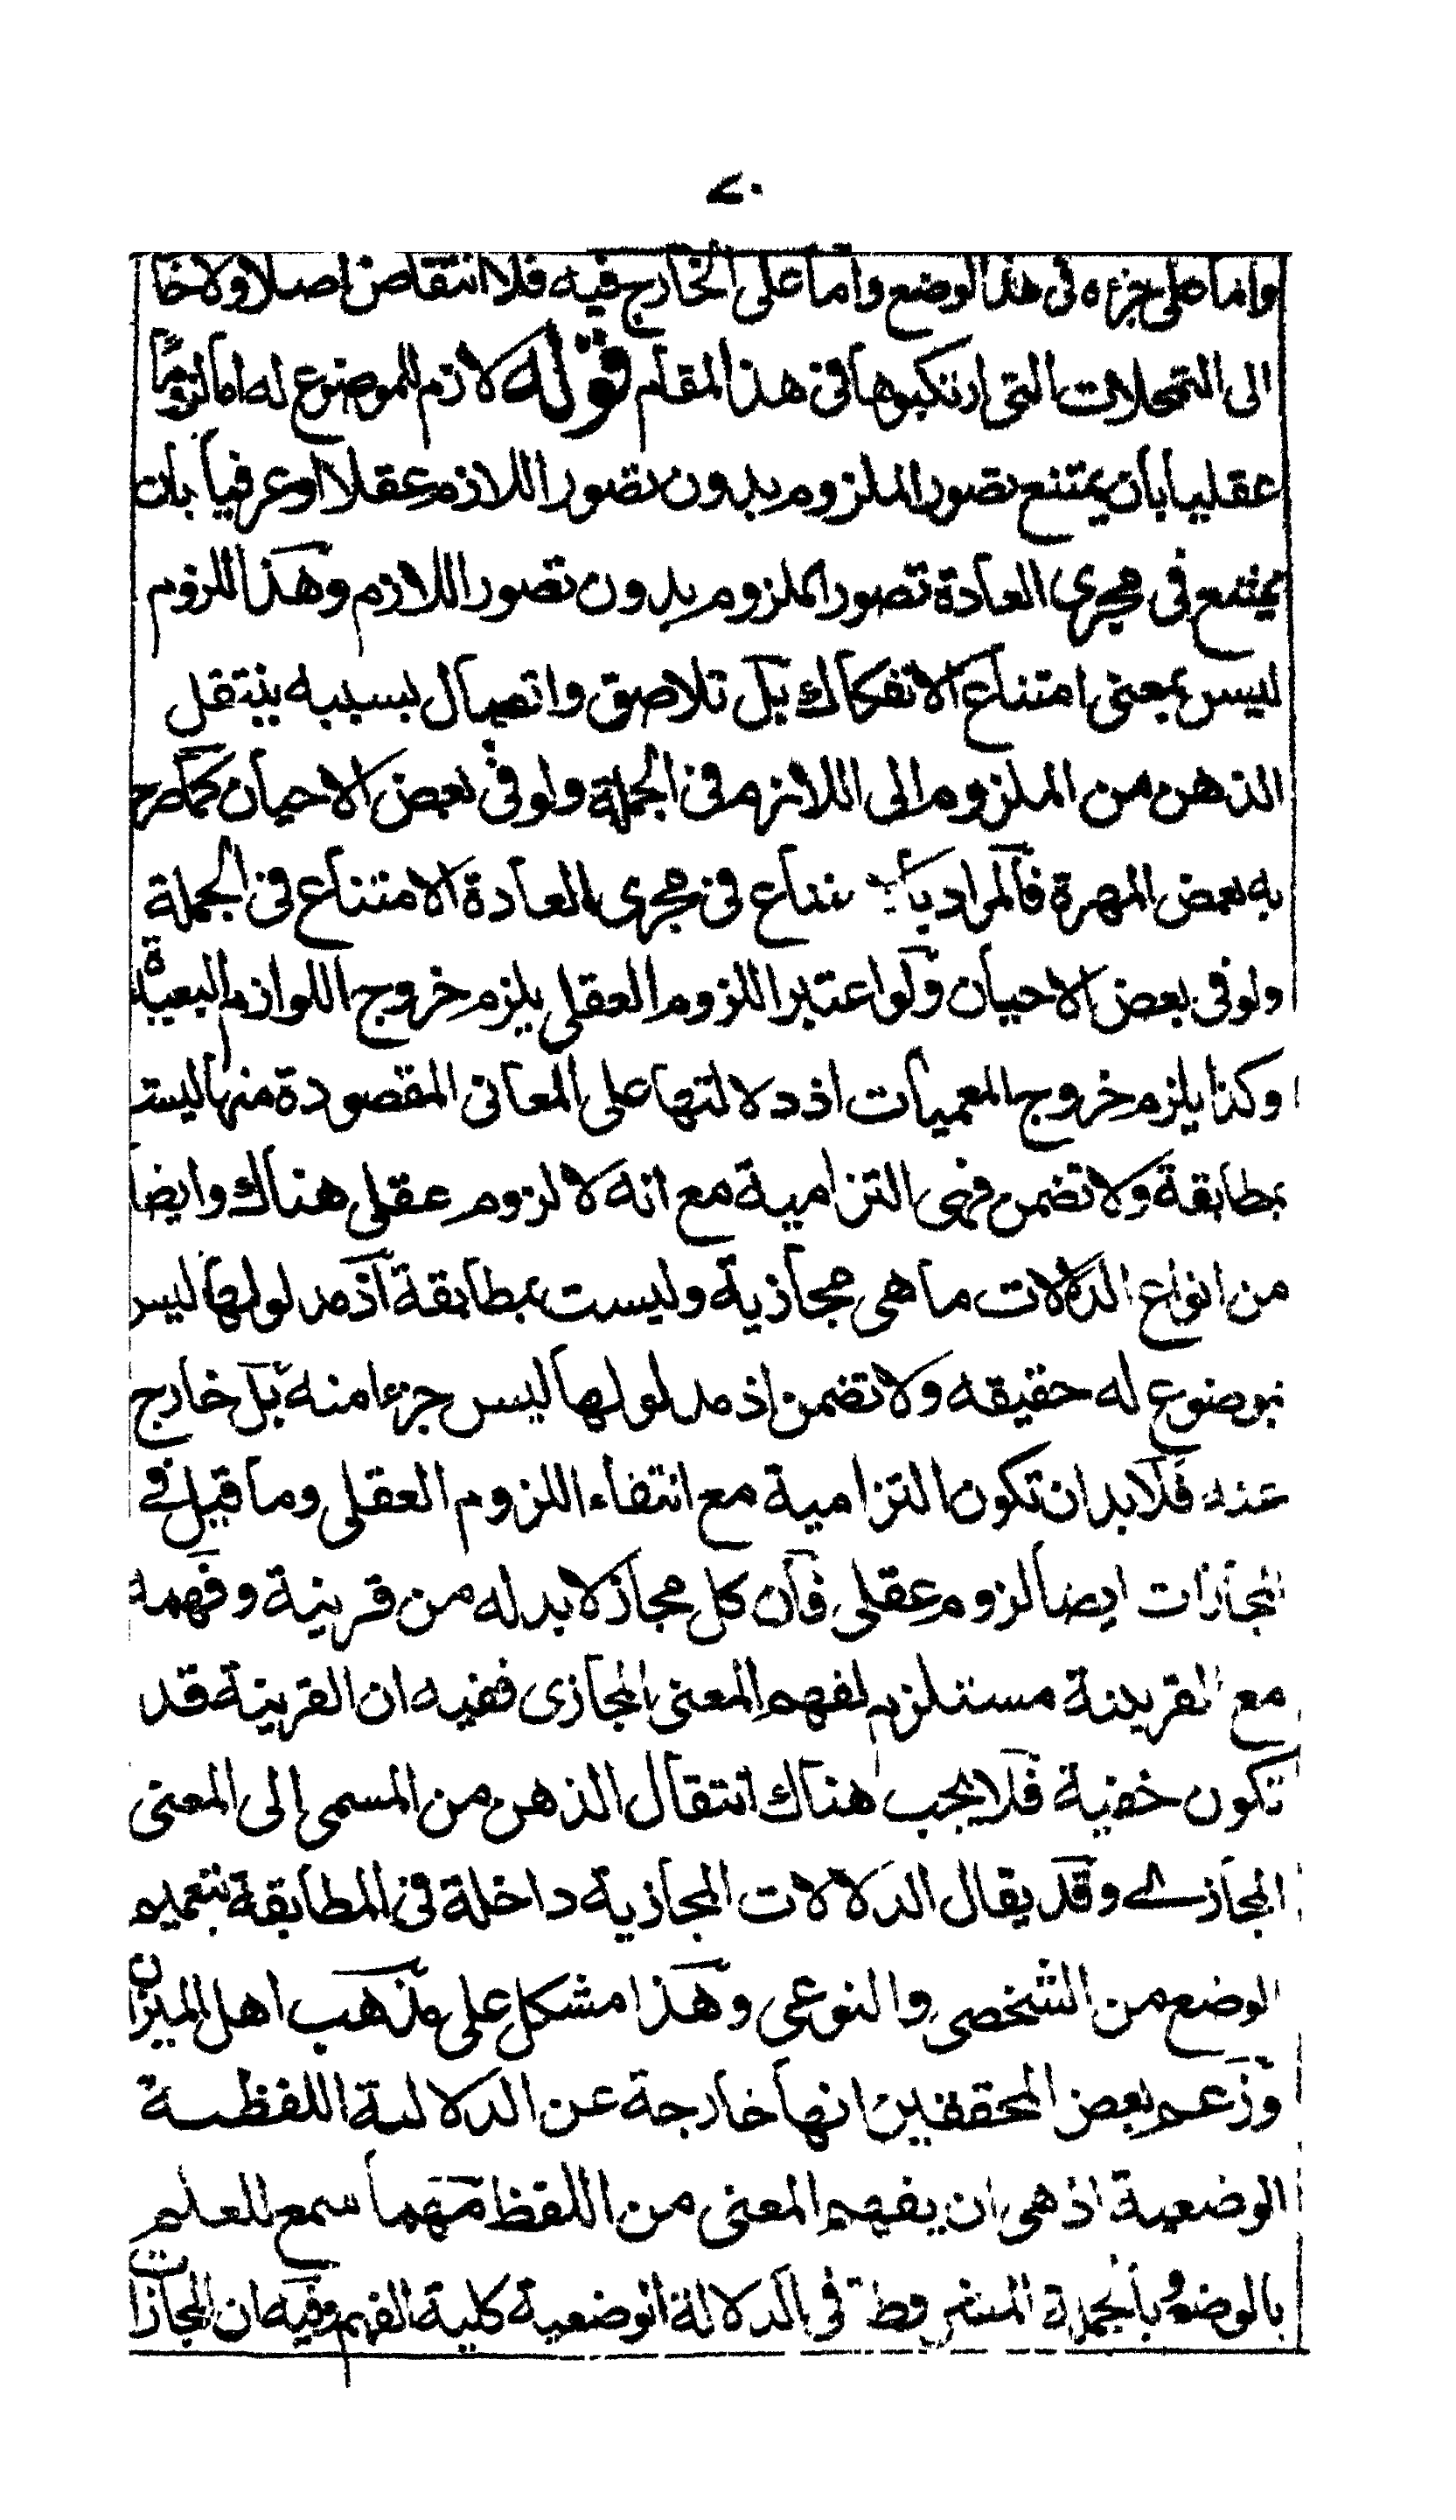 ٢٠
واما على جزءه فى هذا الوضع واما على الخارج فيه فلا انتقاض اصلا ولا حا
الى التمحلات التى ارتكبوها فى هذا المقام قوله لازم للموضوع له اما لزوما
عقليا بان يمتنع تصور الملزوم بدون تصور اللازم عقلا او عرفيا بان
يمتنع فى مجرى العادة تصور الملزوم بدون تصور اللازم وهذا اللزوم
ليس بمعنى امتناع الانفكاك بل تلاصق واتصال بسببه ينتقل
الذهن من الملزوم الى اللازم فى الجملة ولو فى بعض الاحيان كما صرح
به بعض المهرة فالمراد بامتناع فى مجرى العادة الامتناع فى الجملة
ولو فى بعض الاحيان ولو اعتبر اللزوم العقلى يلزم خروج اللوازم البعيدة
وكذا يلزم خروج المعميات اذ دلالتها على المعانى المقصودة منها ليست
بمطابقة ولا تضمن فهى التزامية مع انه لا لزوم عقلى هناك وايضا
من انواع الدلالات ما هى مجازية وليست بمطابقة اذ مدلولها ليس
بموضوع له حقيقه ولا تضمن اذ مدلولها ليس جزءا منه بل خارج
عنه فلا بد ان تكون التزامية مع انتفاء اللزوم العقلى وما قيل فى
المجازات ايضا لزوم عقلى فان كل مجاز لا بد له من قرينة وفهمه
مع القرينة مستلزم لفهم المعنى المجازى ففيه ان القرينة قد
تكون خفية فلا يجب هناك انتقال الذهن من المسمى الى المعنى
المجازے وقد يقال الدلالات المجازية داخلة فى المطابقة بتعميم
الوضع من الشخصى والنوعى وهذا مشكل على مذهب اهل الميزان
وزعم بعض المحققين انها خارجة عن الدلالة اللفظية
الوضعية اذ هى ان يفهم المعنى من اللفظ مهما سمع للعلم
بالوضع وبالجملة المشروط فى الدلالة الوضعية كلية الفهم وفيه ان المجازات